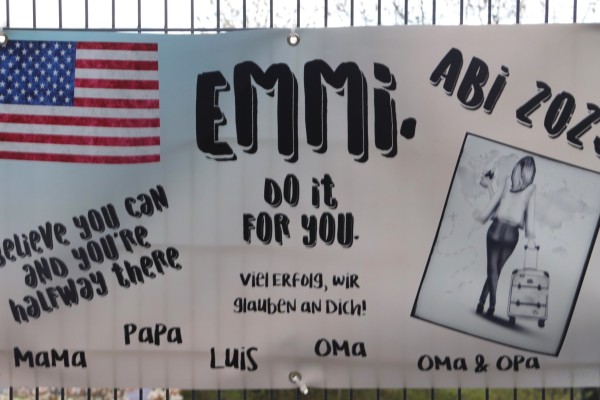 EMMi.
ABi 202
Do it
FOR YOU.
Believe YOU CAN
AND YOU'RE
halfway there
Viel ERFolg, wiR
glauben an Dich!
MaMa
PaPa
LUiS
OMa
OMa & OPa